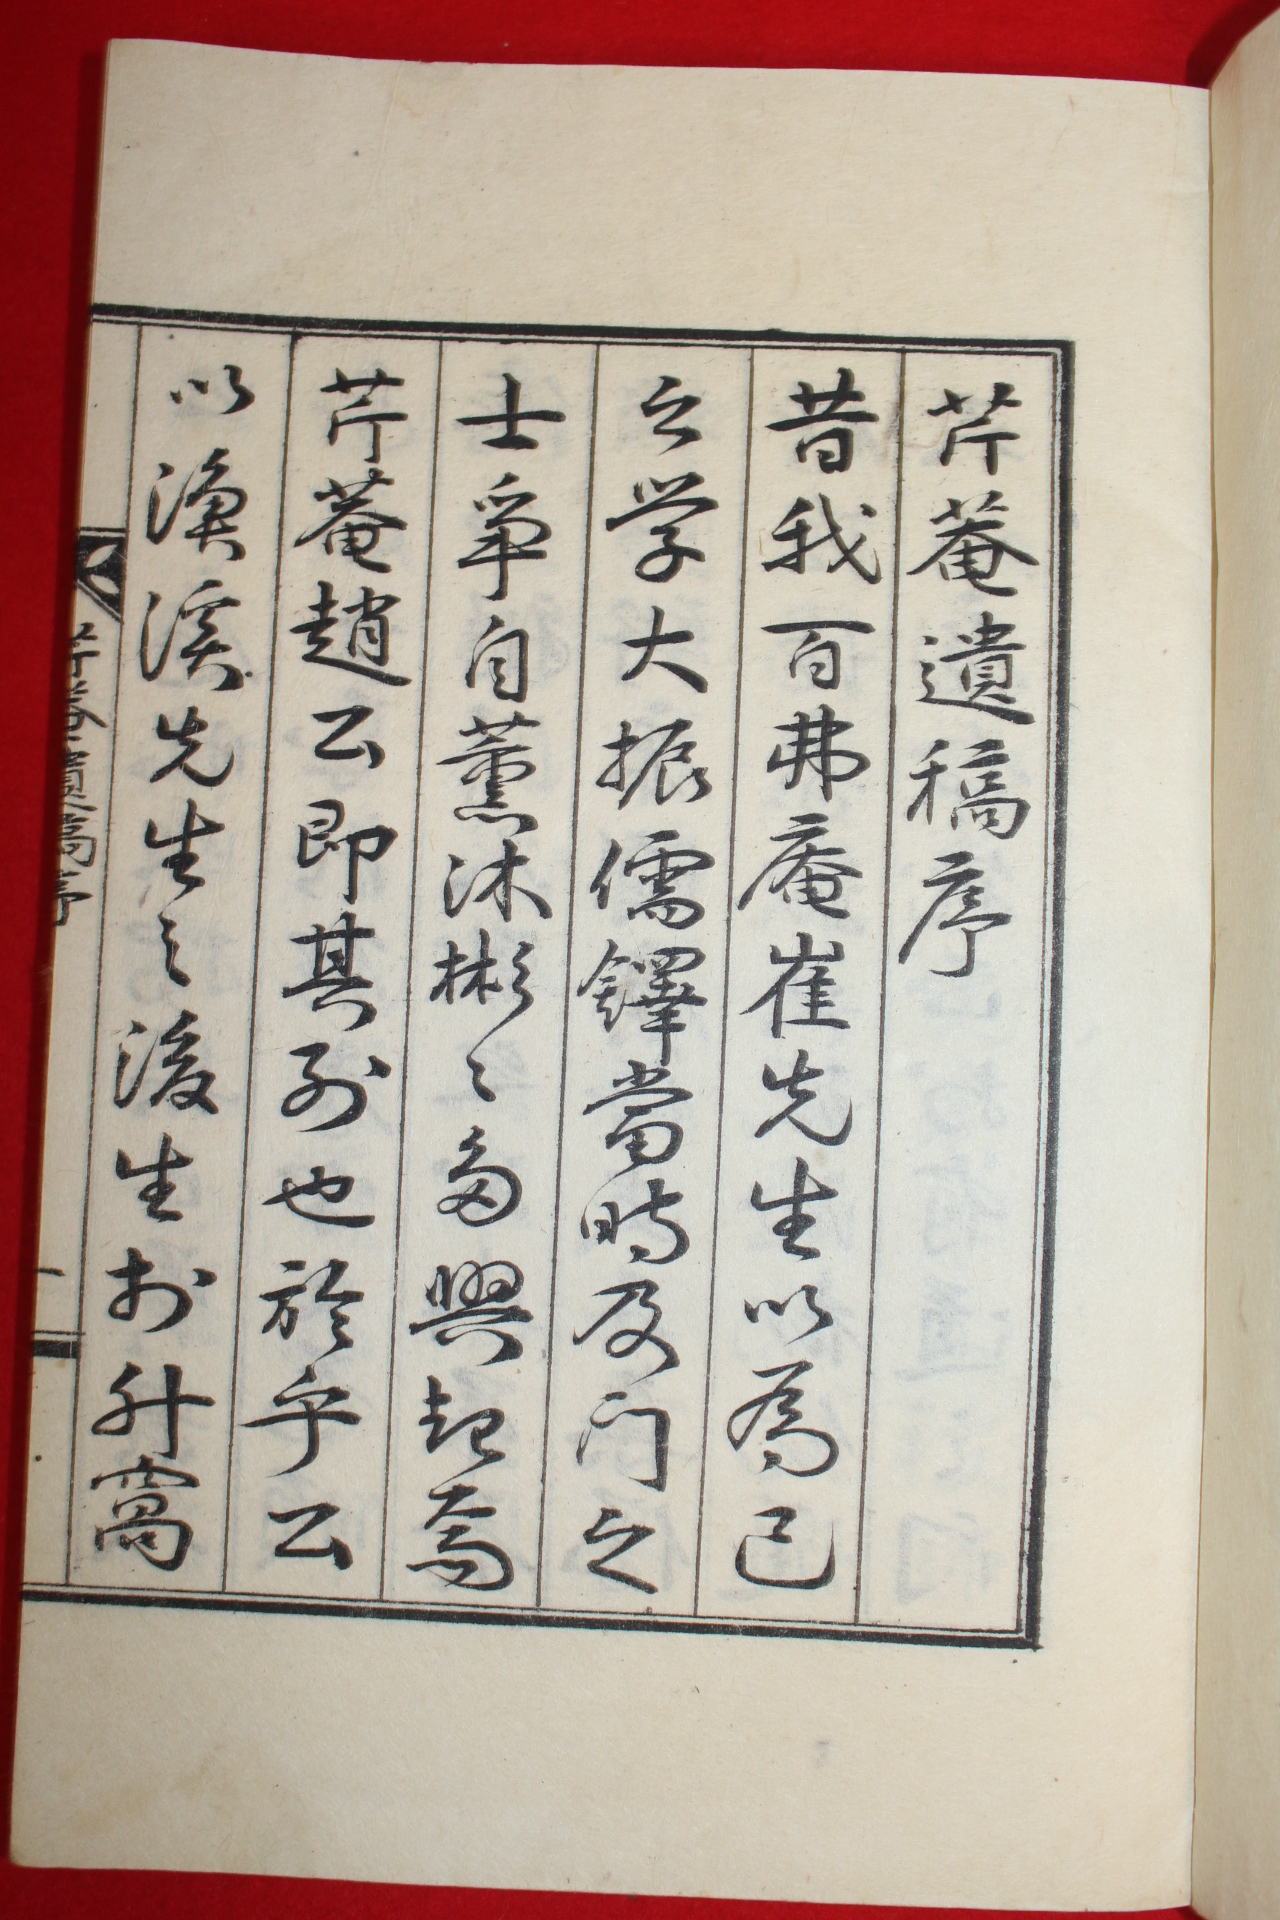 芹菴遺稿序
昔我百弗庵崔先生以爲己
之学大振儒鐸當時及门之
士爭自薰沐彬〻多興起焉
芹菴趙公即其列也於乎公
以漁溪先生之後生於升
芹菴遺稿序
一